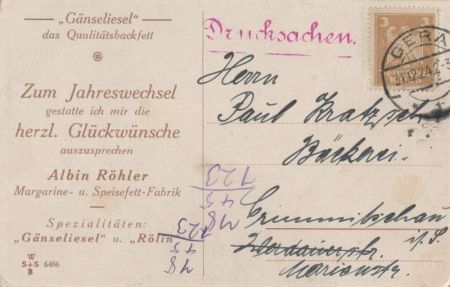 „Gänseliesel"
das Qualitätsbackfett
Zum Jahreswechsel
gestatte ich mir die
herzl. Glückwünsche
auszusprechen
Albin Röhler
Margarine- u. Speisefett-Fabrik
Spezialitäten:
„Gänseliesel" u. „Rölin"
W
S+S 6486
B
Drucksachen.
3 3
GERA
31.12.24
Herrn
Paul Kratzsch
Bäckerei
Crimmitschau
i/S.
Werdauerstr.
Marienstr.
123
45
78
123
45
78